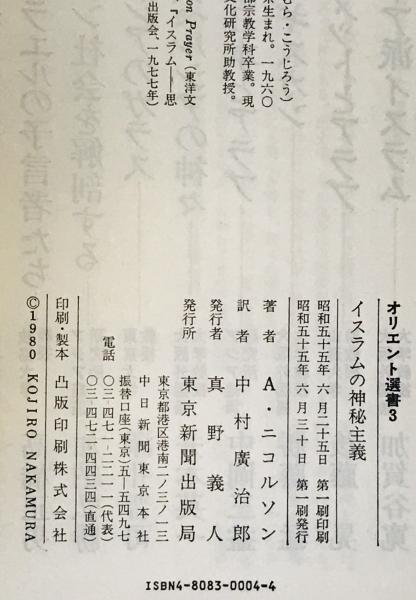 むら・こうじろう)
来生まれ。一九六〇
部宗教学科卒業。現
文化研究所助教授。
on Prayer (東洋文
『イスラム――思
出版会、一九七七年)
オリエント選書3
イスラムの神秘主義
昭和五十五年 六月二十五日 第一刷印刷
昭和五十五年 六月三十日 第一刷発行
著者 A・ニコルソン
訳者 中村廣治郎
発行者 真野義人
発行所 東京新聞出版局
東京都港区港南二ノ三ノ一三
中日新聞東京本社
振替口座(東京)五―五四九七
電話 〇三・四七一・二二一一(代表)
〇三・四七二・四四三四(直通)
印刷・製本 凸版印刷株式会社
©1980 KOJIRO NAKAMURA
ISBN4-8083-0004-4